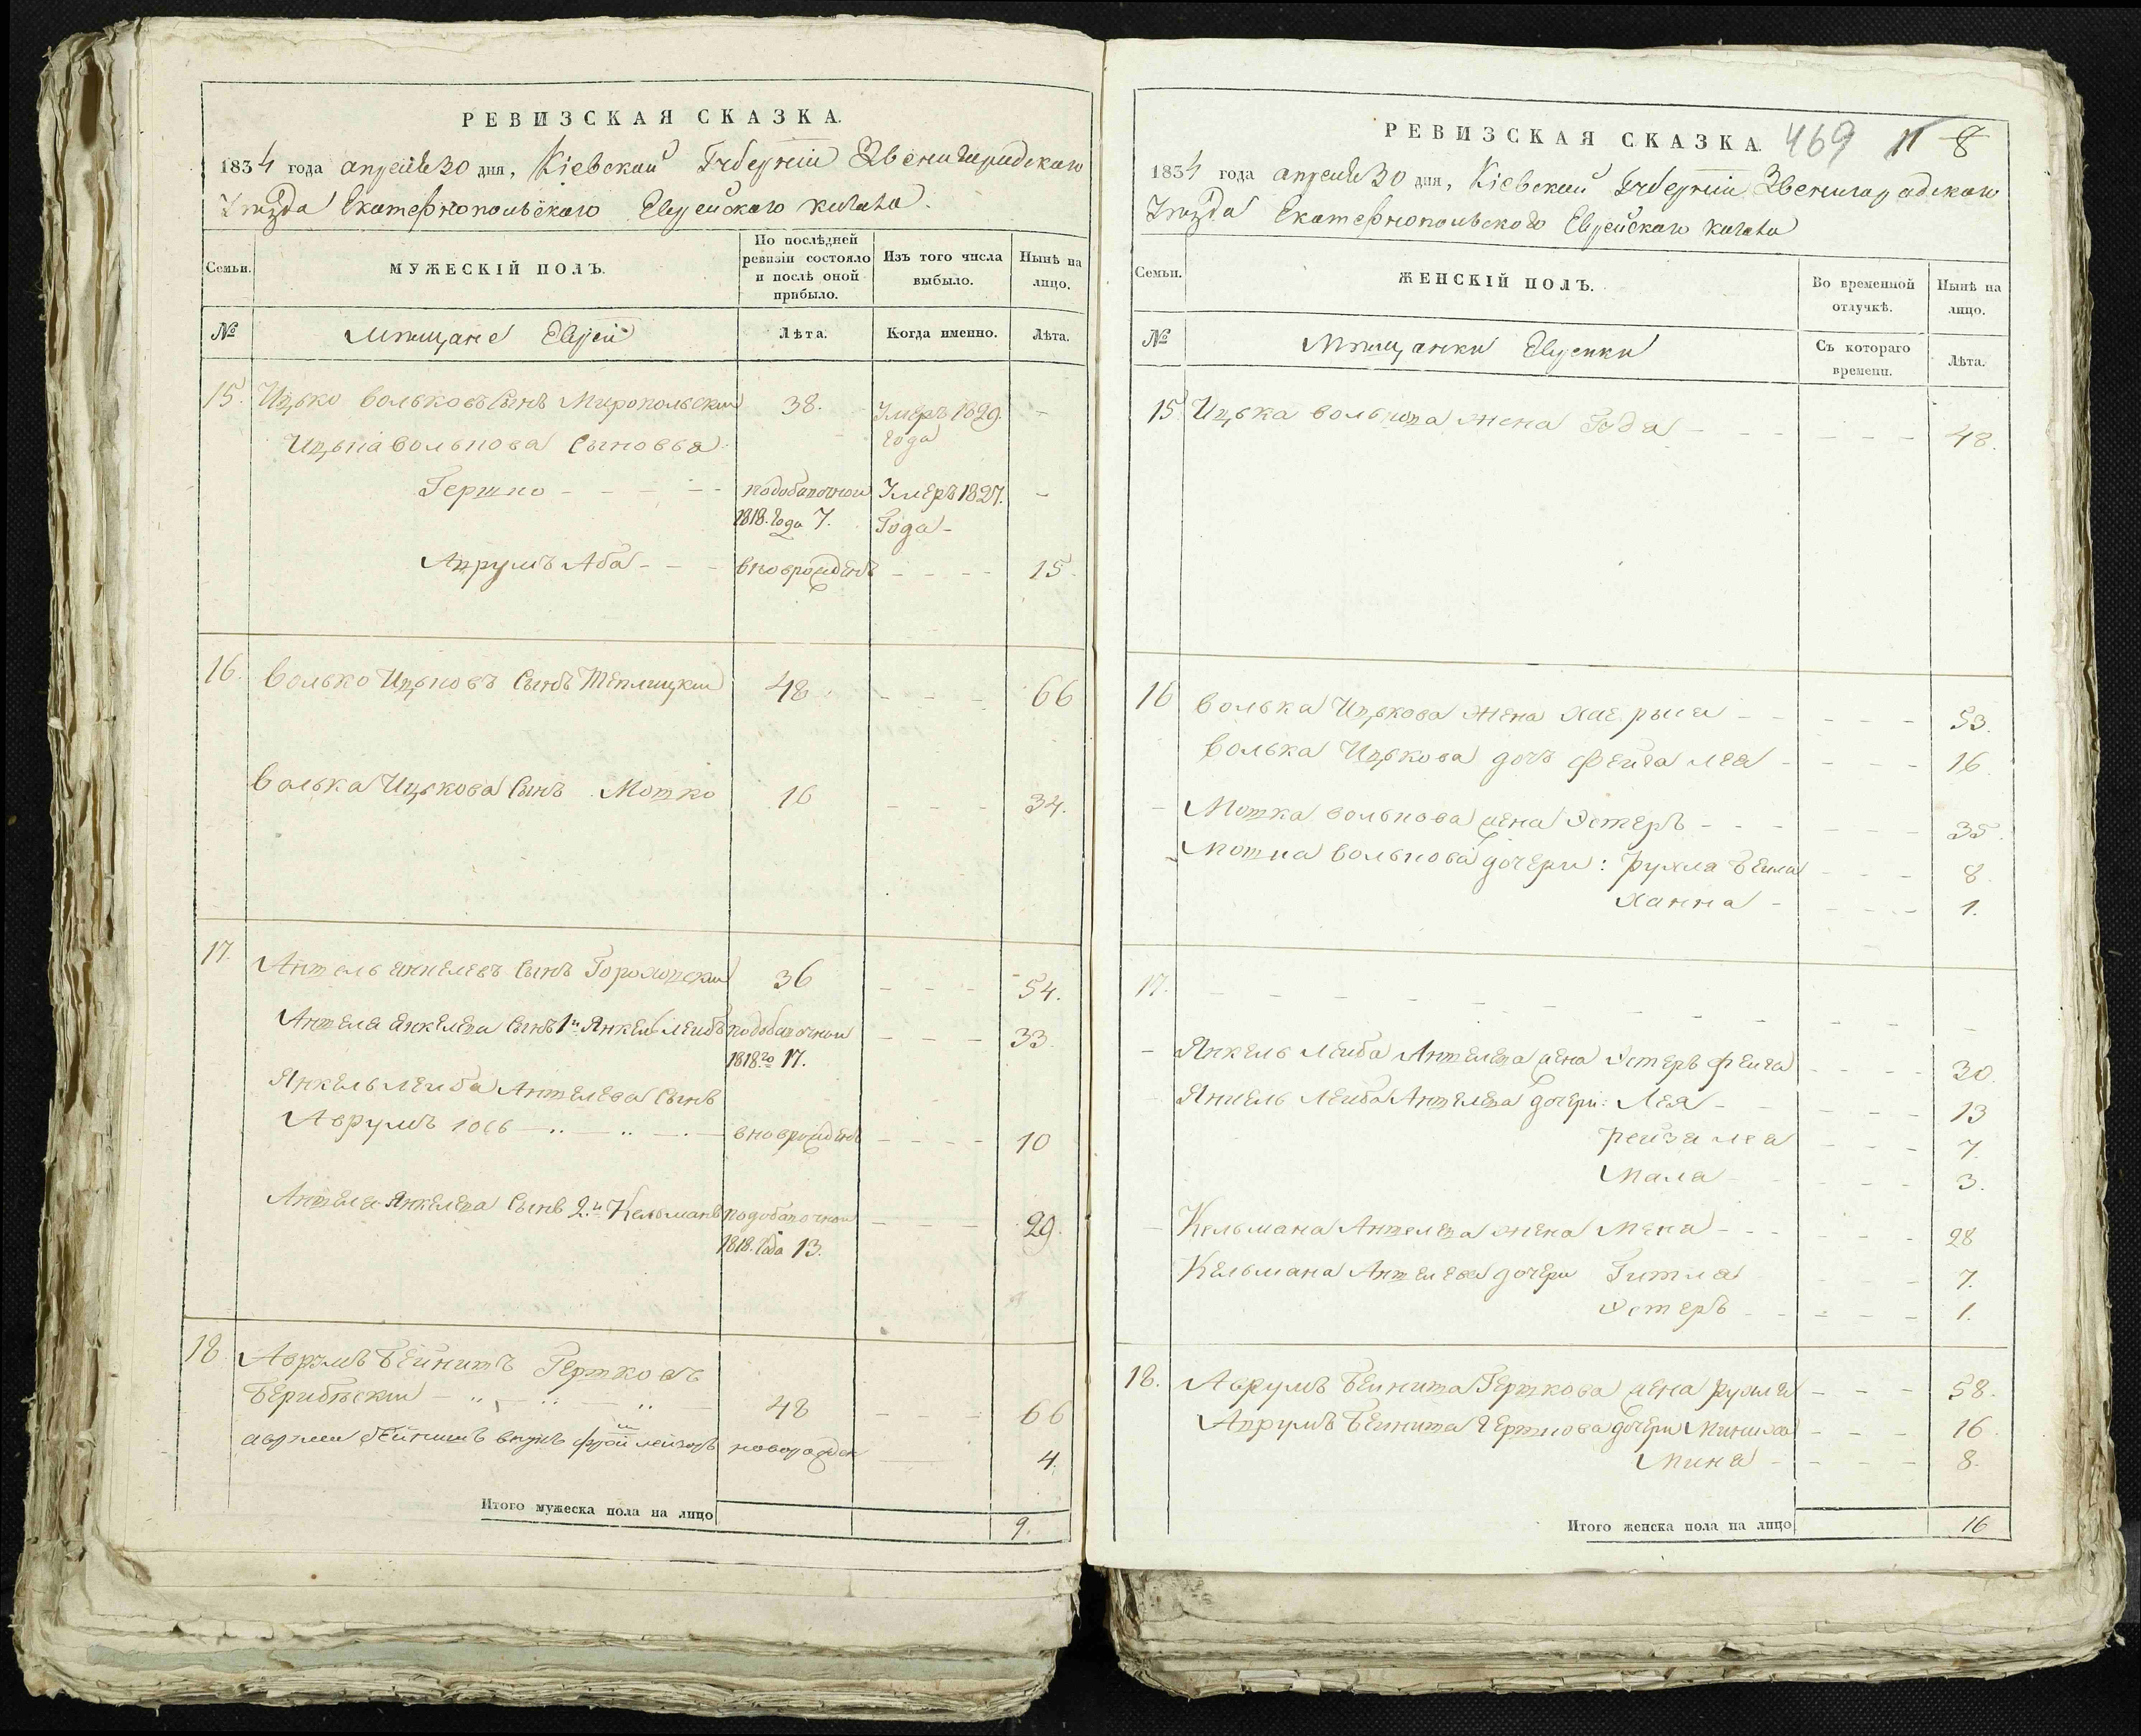 РЕВИЗСКАЯ СКАЗКА.
1834 года апреля 30 дня, Кіевской Губерніи Звенигородскаго
Уѣзда Екатеринопольскаго Еврейскаго кагала.
Семьи.
МУЖЕСКІЙ ПОЛЪ.
По послѣдней ревизіи состояло и послѣ оной прибыло.
Изъ того числа выбыло.
Нынѣ на лицо.
№
Мѣщане Евреи
Лѣта.
Когда именно.
Лѣта.
15. Ицько Вольковъ Сынъ Миропольскій 38. Умеръ 1829. –
Ицька Волькова Сыновья года
Гершко – – – – подобапочной Умеръ 1827. –
1818. года 7. Года –
Аврумъ Аба – – – вноврожденъ – – – – 15.
16. Волько Ицьковъ Сынъ Теплицкій 48. – – – 66
Волька Ицькова Сынъ Мотко 16 – – – 34.
17. Антель Янкелевъ Сынъ 36 – – – 54.
Антеля Янкелева Сынъ 1й Янкель Лейбъ – – – 33.
1818го 17.
Янкель Лейба Антелева Сынъ
Аврумъ Іось – „ – „ – вноврожденъ – – – – 10
Антеля Янкелева Сынъ 2й Кельманъ – – – 29.
1818. года 13.
18. Аврумъ Бейнишъ Гершковъ
– „ – „ – „ – 48 – – – 66
Аврума Бейниша внукъ новорожден 4.
Итого мужеска пола на лицо
9.
РЕВИЗСКАЯ СКАЗКА. 469 11 8
1834 года апреля 30 дня, Кіевской Губерніи Звенигородскаго
Уѣзда Екатеринопольскаго Еврейскаго кагала
Семьи.
ЖЕНСКІЙ ПОЛЪ.
Во временной отлучкѣ.
Нынѣ на лицо.
№
Мѣщанки Еврейки
Съ котораго времени.
Лѣта.
15. Ицька Волькова жена Года – – – – – – 48.
16 Волька Ицькова жена – – – – – 53.
Волька Ицькова дочь Фейга Лея – – – – 16
– Мотка Волькова жена Эстеръ – – – – – – 35.
– Мотка Волькова дочери: Рухля Бейла – – – 8.
Ханна – – – – – 1.
17. – – – – – – – – – – –
– Янкель Лейба Антелева жена Эстеръ Фейга – – – – 30.
Янкель Лейба Антелева дочери: Лея – – – – – 13
Рейза Лея – – – 7.
Мала – – – – 3.
– Кельмана Антелева жена – – – – – – 28
Кельмана Антелева дочери Гитля – – – 7.
Эстеръ – – – – – 1.
18. Аврумъ Бейниша Гершкова жена Рухля – – – 58.
Аврумъ Бейниша Гершкова дочери – – – 16.
Мина – – – – 8.
Итого женска пола на лицо
16